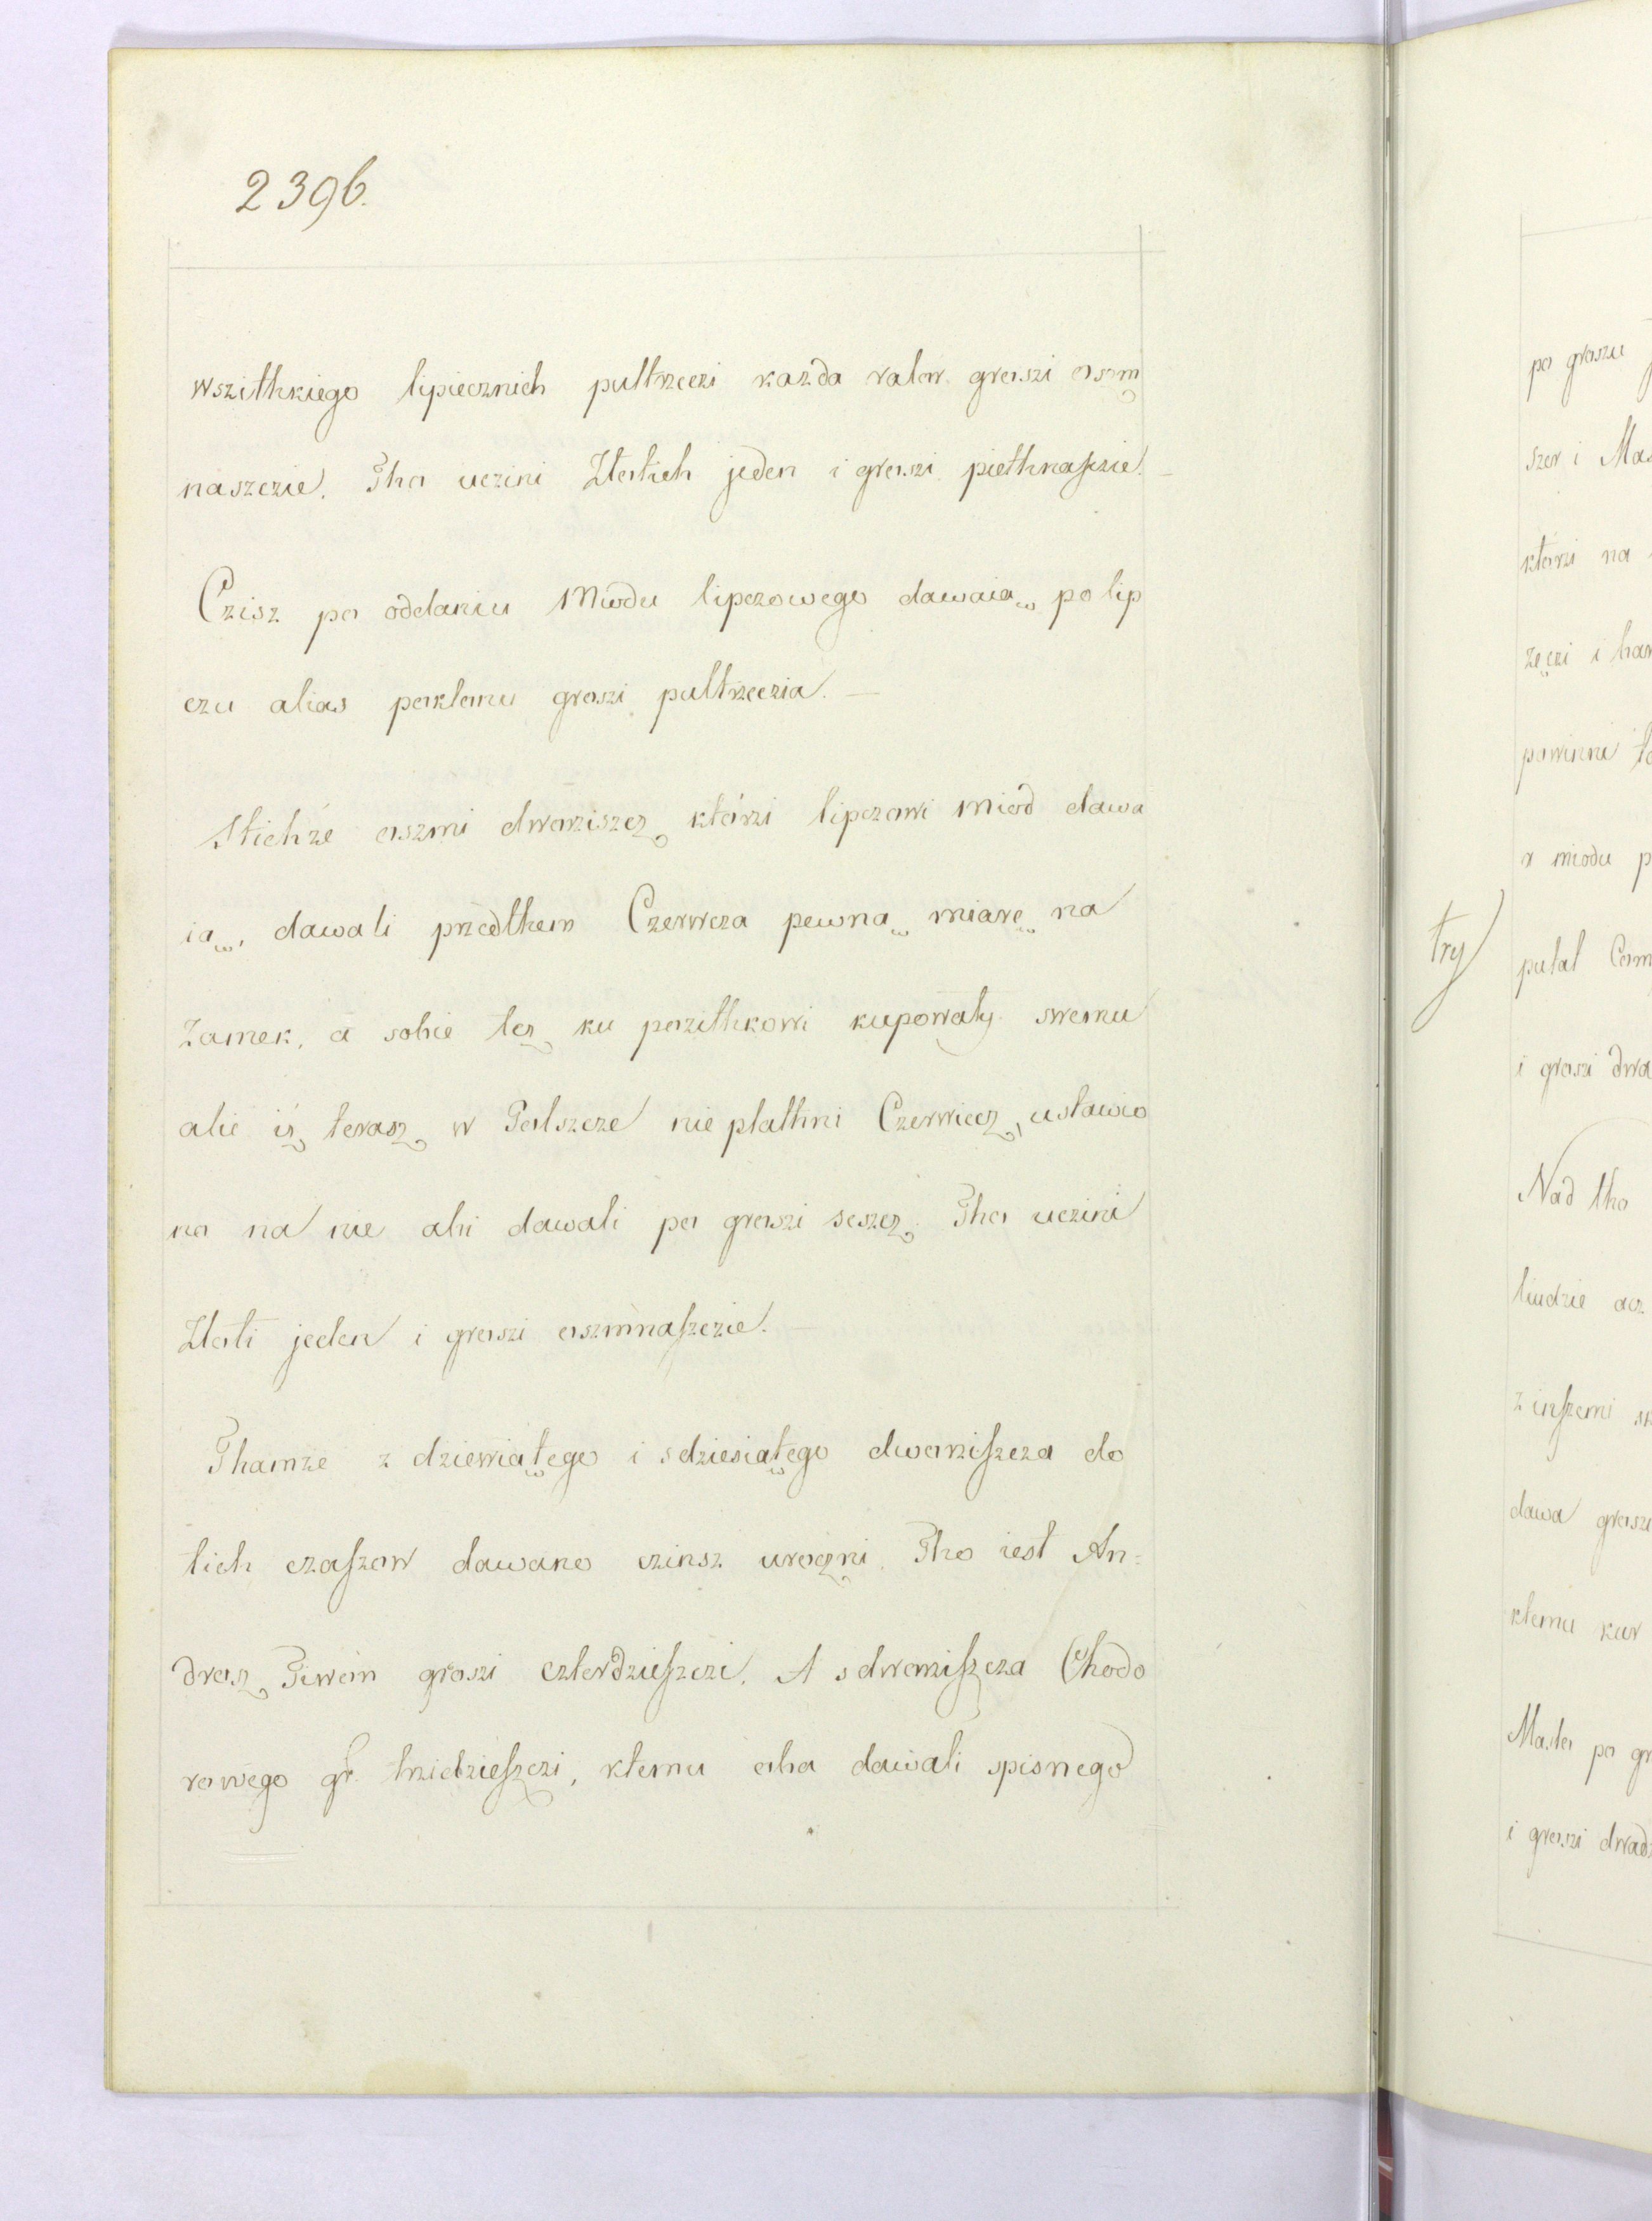 2396.
wszithkiego lipiecznich pultrzeczi każda valor. groszi osm
naszczie. Tho uczini Złotich jeden i groszi piethnaszczie. —
Czisz po oddaniu Miodu lipczowego dawaią po lip
czu alias poklonu groszi pultrzeczia. —
Stichże oszmi dworziszcz którzi lipczowi miód dawa
ią, dawali przedthem Czerwcza pewną miarę na
Zamek, a sobie tez ku pozithkowi kupowały swemu
alie iż terasz w Polszcze nie plathni Czerwiecz, ustawio
no na nie abi dawali po groszi seszcz. Tho uczini
Złoti jeden i groszi oszmnaszczie. —
Thamże z dziewiątego i sdziesiątego dworziszcza do
tich czaszow dawano czinsz uroczni. Tho iest An=
drosz Piwoin groszi czterdzieszczi. A sdworziszcza Chodo
rowego gr. trzidzieszczi, ktemu oba dawali spisnego
po groszu
szer i Mas
którzi na
zęczi i
powinni
z miodu p
try
putat
i groszi dwa
Nad tho
liudzie acz
z inszemi
dawa groszi
ktemu kur
Masła po gr
i groszi dwadz